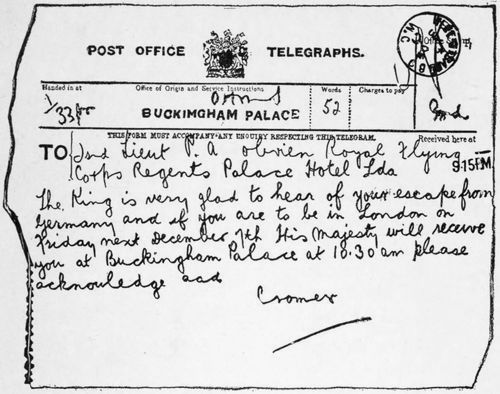 POST OFFICE TELEGRAPHS.
Handed in at
Office of Origin and Service Instructions
Words
Charges to pay
1/33
OHMS
BUCKIMGHAM PALACE
52
THIS FORM MUST ACCOMPANY ANY ENQUIRY RESPECTING THIS TELEGRAM.
Received here at
TO 2nd Lieut P. A obrien Royal Flying
9.15PM
Corps Regents Palace Hotel Ldn
The King is very glad to hear of your escape from
Germany and if you are to be in London on
Friday next December 7th His Majesty will receive
you at Buckingham Palace at 10.30 am please
acknowledge
Cromer